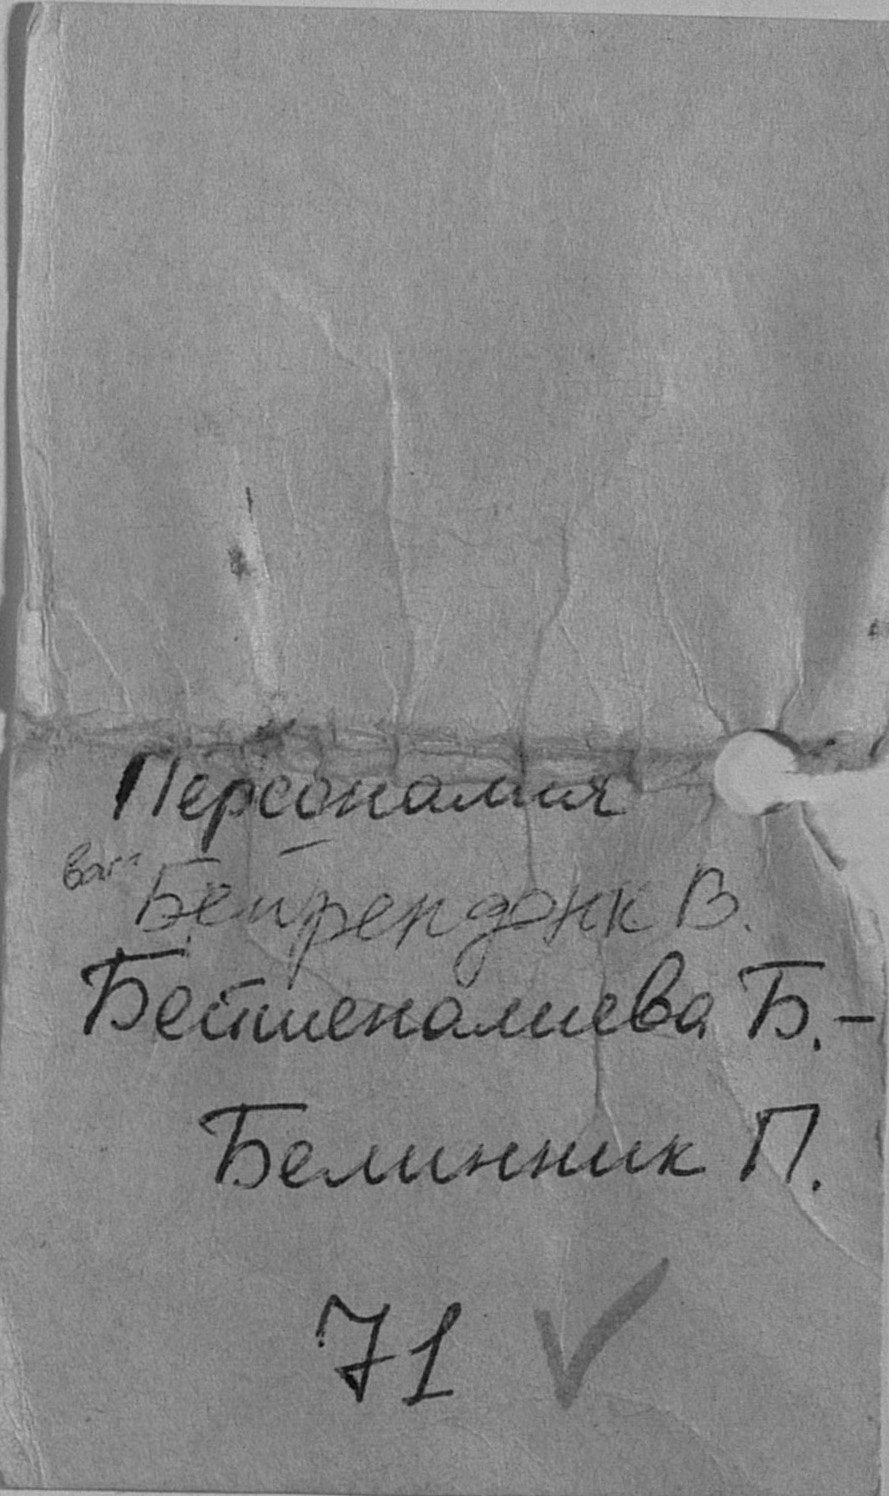 Персоналия
Бейрендонк В.
Бейшеналиева Б.-
Белинник П.
71 ✓